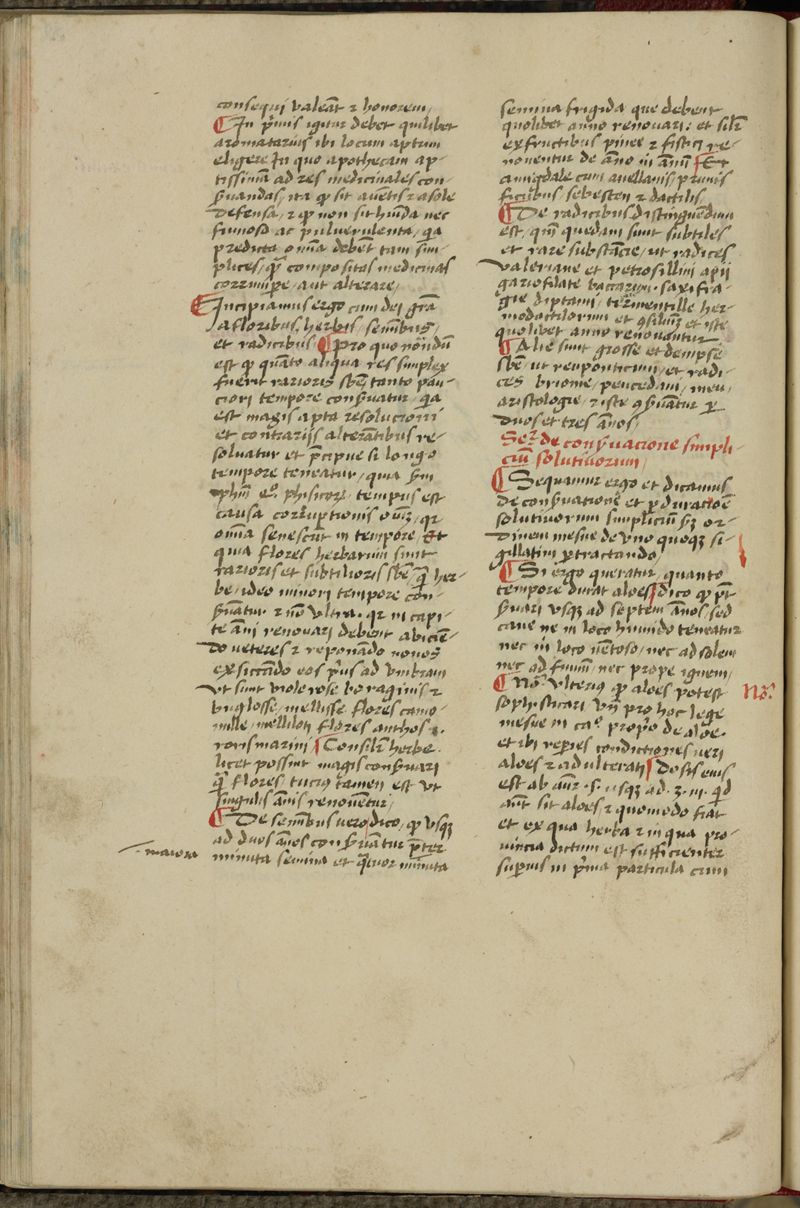 consequi valeāt ⁊ honorem
¶ In p̄mis igitur debet quilibet
aromatarius ibi locum aptum
eligere In quo apothecam ap-
tissimā ad res medicinales con-
ẜuandas, ita ꝙ sit auentis ⁊ a sole
defensa, ⁊ ꝙ non sit hūida nec
fumosa ac puluerulenta, qa
predicta om̄ia debēt tam sim-
plices, qͣ compositas medicinas
corrumpe, aut alterare,
¶ Incipiamus ergo cum dei gr̄a
a floribus, herbis, semībus,
et radicibus ¶ Pro quo notandū
est ꝙ quāto aliqua res simplex
fuerit rarioris sbē tanto pau-
ciori tempore conẜuatur, qia
est magis apta resolucioni
et contrarijs alterātibus re-
soluatur et p̄cipue si longo
tempore teneatur, quia ẜm
phm̄ phisicoꝝ, tempus est
causa corruptionis qꝛ
om̄ia senescūt in tempore Et
quia flores herbarum sunt
rarioris et subtilioris sbē, qͣ her-
be, ideo minori tempore con-
ẜuatur ⁊ nō vltra, qꝛ in capi-
te āni renouari debent abiciē-
do veteres ⁊ reponādo nouos
exsiccādo eos p̄us ad vmbram
vt sunt viole rose boraginis ⁊
buglosse, mellisse flores camo-
mille, melliloti flores anthos .i.
rorismarini ¶ Consilr̄ herbe
licet possint magis conẜuari
qͣ flores, tucius tamen est vt
singulis ānis renouentur,
¶ De semībus uero dico, ꝙ vsqꝫ
ad duos ānos conẜuātur p̄ter
minuta semina et quatuor minuta
maiora
semina frigida que debent
quolibet anno renouari: et silr̄
ex fructibus pinee ⁊ fistici re-
nouentur de āno in ānū ¶ Et
amigdale cum auellanis, prunis
ficubus, sebesten ⁊ dactilis
¶ De radicibus, distinguēdum
est, qm̄ quedam sunt subtiles
et rare substācie, ut radices
valeriane et petrosillini apii
gariofilate baccarum, saxifra-
gie diptami, termentille her-
modactilorum et ꝯsiliꝫ et iste
quolibet anno renouantur
¶ Alie sunt grosse et dempse
sbē, ut reuponticum, et radi-
ces brionie, peucedani, meu,
aristologie, ⁊ iste ꝯẜuātur ꝑ
duos et tres ānos,
Seꝛ̄ de conẜuacione simpli-
ciū solutiuorum,
¶ Sequamur ergo et dicamus
de conẜuatione et ꝑduracioē
solutiuorum simplicium ẜꝫ or-
dinem mesue de vno quoqꝫ si-
gillatim ꝑtractando,
¶ Si ergo queratur, quanto
tempore durat aloes, dico ꝙ p̄t
ẜuari vsqꝫ ad septem ānos, sed
caue ne in loco humido teneatur
nec in loco uētoso, nec ad solem
nec ad fumū, nec prope ignem,
¶ Noᷓ. vlteriꝯ ꝙ aloes potest
Noᷓ.
sophisticari vn̄ pro hoc lege
mesue in caº. propo de aloe.
et ibi reperies condictiones ueri
aloes ⁊ adulterati ¶ Dosis eius
est ab aur̄ .s. usqꝫ ad .ʒ.iii. qid
aūt sit aloes, ⁊ quomodo fiat
et ex qua herba ⁊ in qua pro-
uincia dictum est sufficienter
superius in p̄ma particula cum